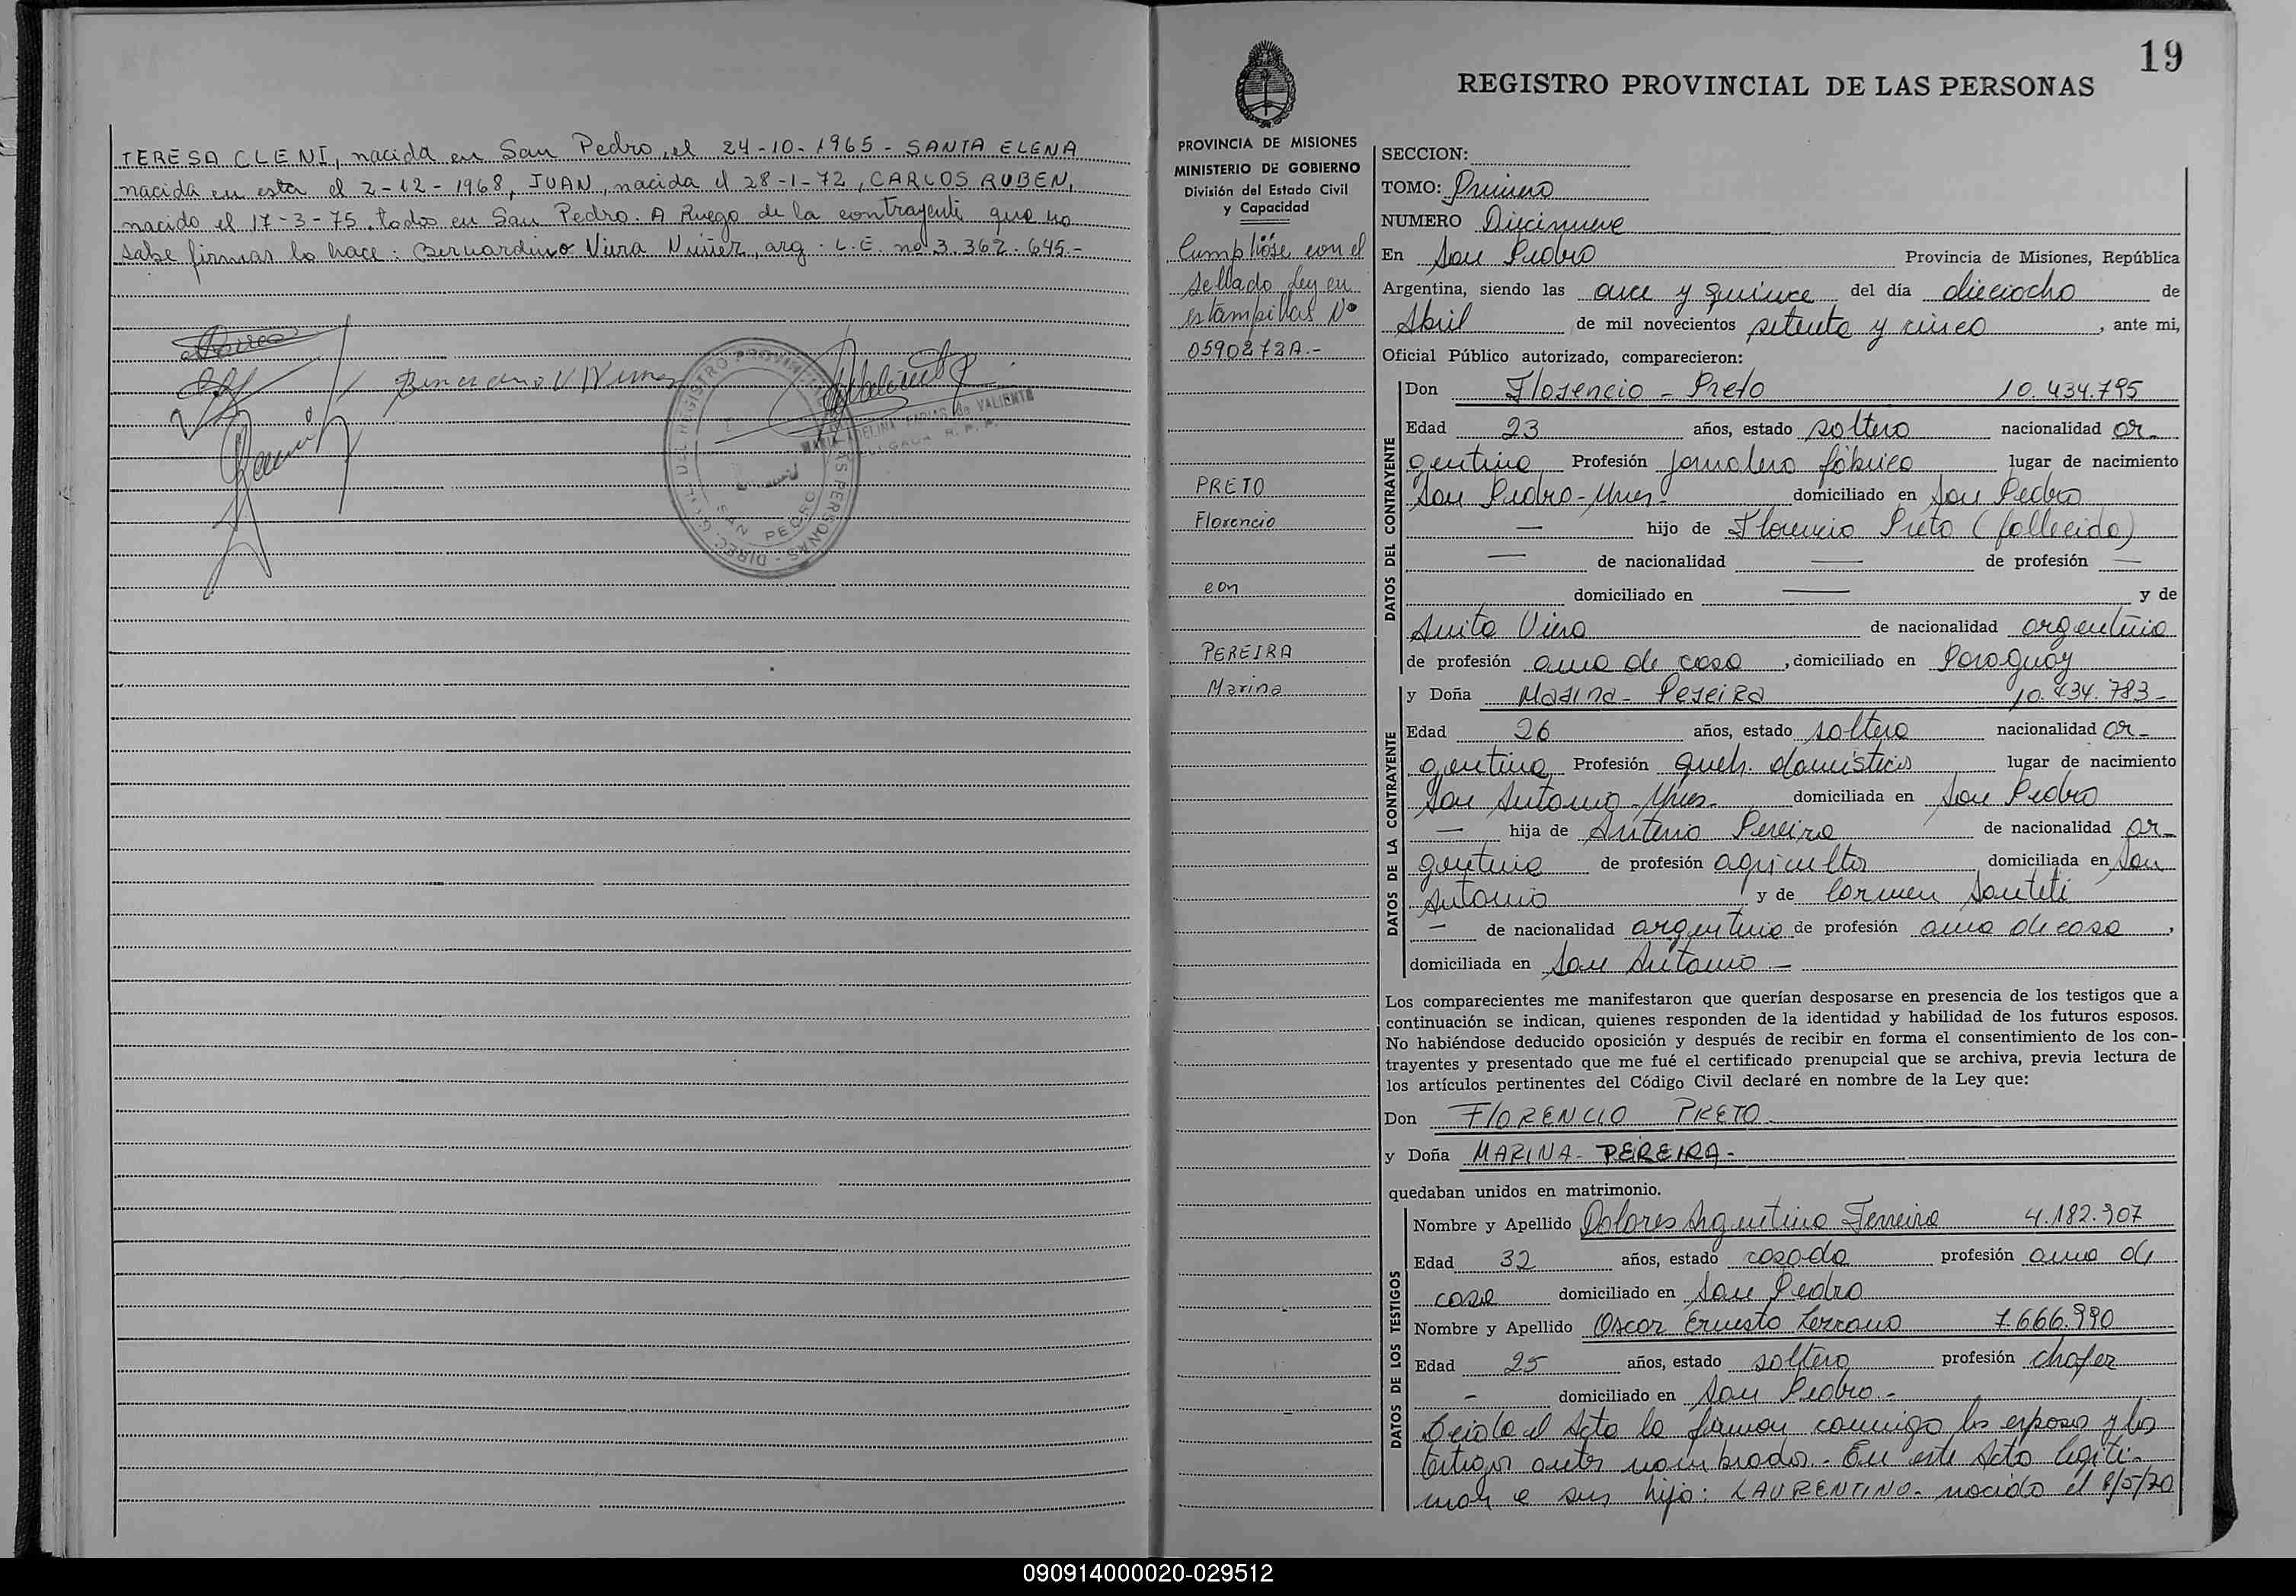 TERESA CLENI, nacida en San Pedro, el 24-10-1965 - SANTA ELENA
nacida en esta el 2-12-1968, JUAN, nacida el 28-1-72, CARLOS RUBEN,
nacido el 17-3-75. todos en San Pedro. A Ruego de la contrayente que no
sabe firmar lo hace: Bernardino Viera Nuñez, arg. L.E. no 3.362.645.-
DIREC. GRAL. DEL REGISTRO PROVINCIAL DE LAS PERSONAS
SAN PEDRO
de VALIENTE
19
REGISTRO PROVINCIAL DE LAS PERSONAS
PROVINCIA DE MISIONES
MINISTERIO DE GOBIERNO
División del Estado Civil
y Capacidad
Cumplióse con el
sellado ley en
estampillas No
0590272A.-
PRETO
Florencio
con
PEREIRA
Marina
SECCION:
TOMO: Primero
NUMERO Diecinueve
En San Pedro Provincia de Misiones, República
Argentina, siendo las once y quince del día dieciocho de
Abril de mil novecientos setenta y cinco, ante mi,
Oficial Público autorizado, comparecieron:
DATOS DEL CONTRAYENTE
Don Florencio - Preto 10.434.795
Edad 23 años, estado soltero nacionalidad ar-
gentino Profesión jornalero fábrica lugar de nacimiento
San Pedro-Mnes- domiciliado en San Pedro
— hijo de Florencio Preto (fallecido)
— de nacionalidad — de profesión —
domiciliado en — y de
Anita Viera de nacionalidad argentina
de profesión ama de casa, domiciliado en Paraguay
DATOS DE LA CONTRAYENTE
y Doña Marina - Pereira 10.434.783-
Edad 26 años, estado soltera nacionalidad ar-
gentina Profesión queh. domésticos lugar de nacimiento
San Antonio-Mnes- domiciliada en San Pedro
— hija de Antenio Pereira de nacionalidad ar-
gentina de profesión agricultor domiciliada en San
Antonio y de Carmen Santeti
— de nacionalidad argentina de profesión ama de casa,
domiciliada en San Antonio -
Los comparecientes me manifestaron que querían desposarse en presencia de los testigos que a
continuación se indican, quienes responden de la identidad y habilidad de los futuros esposos.
No habiéndose deducido oposición y después de recibir en forma el consentimiento de los con-
trayentes y presentado que me fué el certificado prenupcial que se archiva, previa lectura de
los artículos pertinentes del Código Civil declaré en nombre de la Ley que:
Don FLORENCIO PRETO-
y Doña MARINA - PEREIRA-
quedaban unidos en matrimonio.
DATOS DE LOS TESTIGOS
Nombre y Apellido Dolores Argentina Ferreira 4.182.907
Edad 32 años, estado casada profesión ama de
casa domiciliado en San Pedro
Nombre y Apellido Oscar Ernesto Lezcano 7.666.990
Edad 25 años, estado soltero profesión chofer
- domiciliado en San Pedro-
Leída el Acta la firman conmigo los esposos y los
testigos antes nombrados. En este Acto legiti-
man a sus hijo: LAURENTINO- nacido el 8/5/70
090914000020-029512